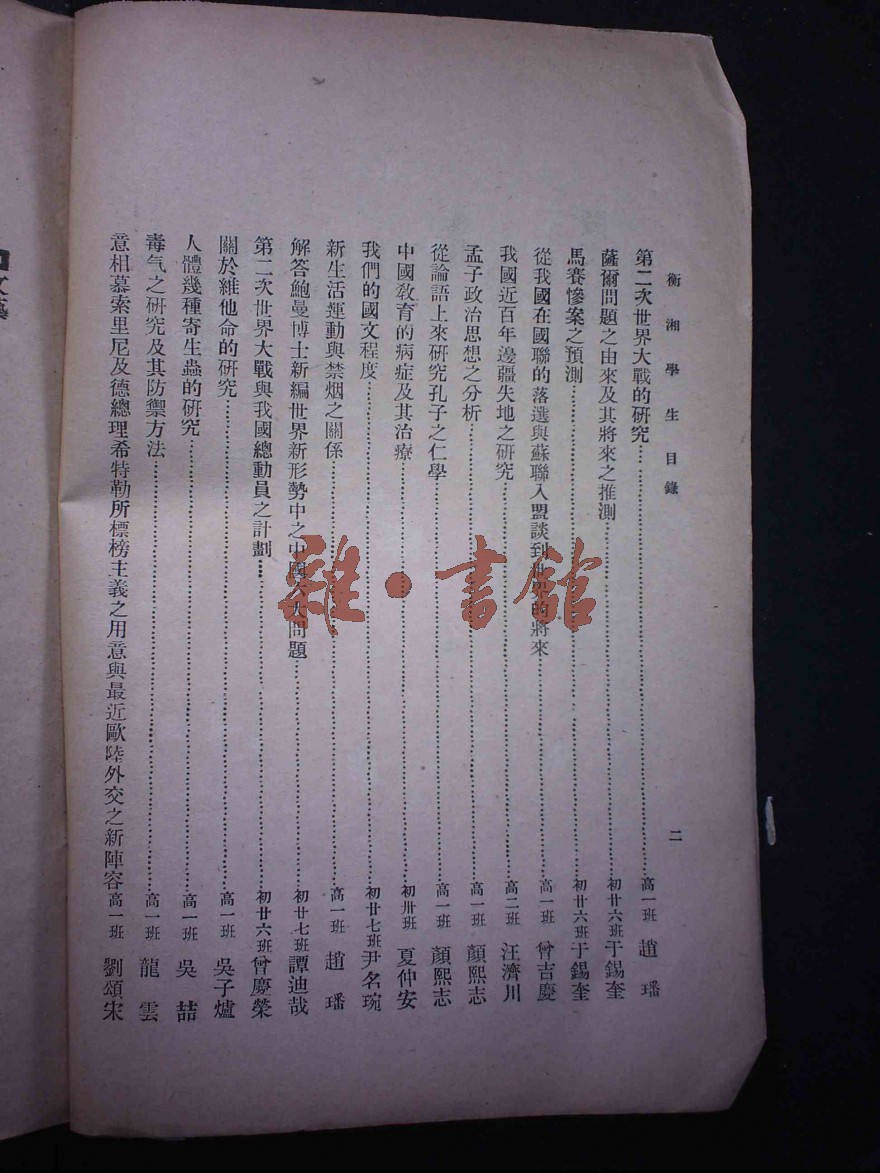 衡湘學生目錄 二
第二次世界大戰的研究……高一班 趙璠
薩爾問題之由來及其將來之推測……初廿六班 于錫奎
馬賽慘案之預測……初廿六班 于錫奎
從我國在國聯的落選與蘇聯入盟談到世界的將來……高一班 曾吉慶
我國近百年邊疆失地之研究……高二班 汪濟川
孟子政治思想之分析……高一班 顏熙志
從論語上來研究孔子之仁學……高一班 顏熙志
中國教育的病症及其治療……初卅班 夏仲安
我們的國文程度……初廿七班 尹名琬
新生活運動與禁烟之關係……高一班 趙璠
解答鮑曼博士新編世界新形勢中之中國六大問題……初廿七班 譚迪哉
第二次世界大戰與我國總動員之計劃……初廿六班 曾慶榮
關於維他命的研究……高一班 吳子爐
人體幾種寄生蟲的研究……高一班 吳喆
毒气之研究及其防禦方法……高一班 龍雲
意相慕索里尼及德總理希特勒所標榜主義之用意與最近歐陸外交之新陣容 高一班 劉頌宋
雜·書館